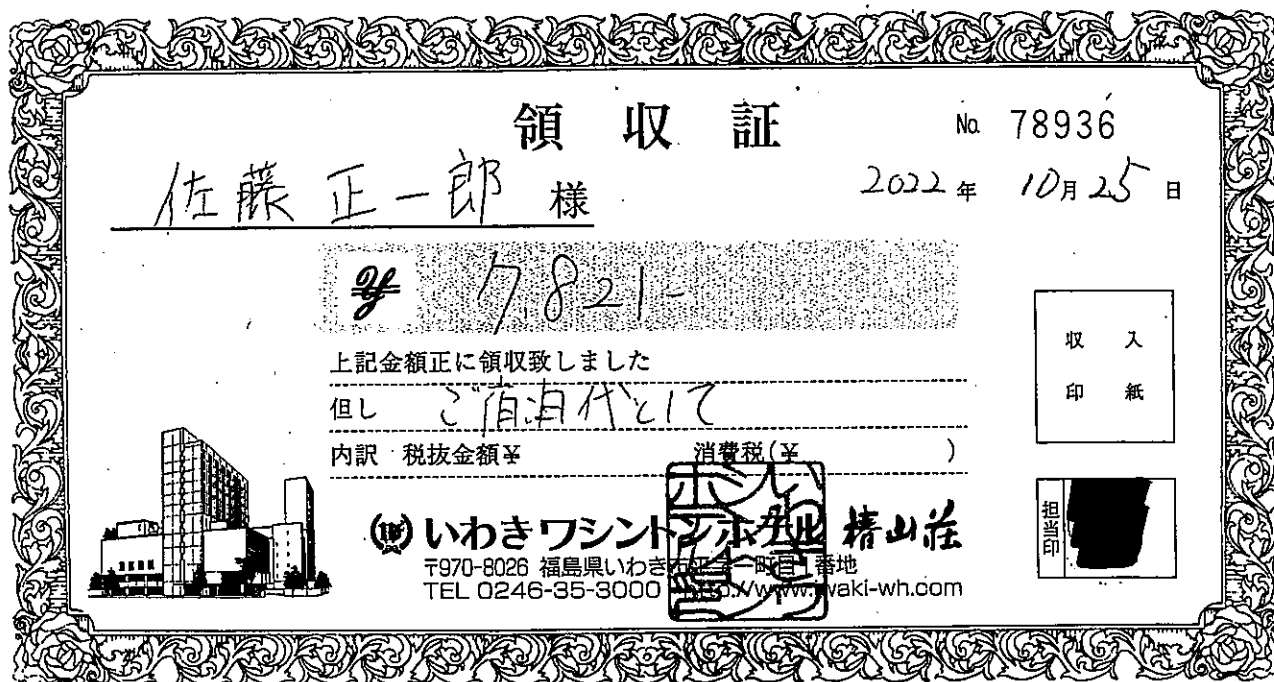 領収証
No. 78936
佐藤 正一郎 様
2022年 10月25日
¥ 7821-
上記金額正に領収致しました
但し ご宿泊代として
内訳 税抜金額¥ 消費税(¥ )
収入
印紙
担当印
いわきワシントンホテル 椿山荘
〒970-8026 福島県いわき市 一町目1番地
TEL 0246-35-3000 http://www.iwaki-wh.com